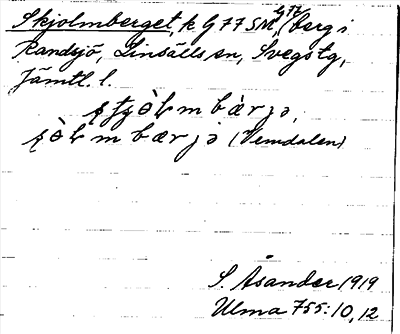 Skjolmberget, k G77SM, G77 (berg i
Randsjö, Linsälls sn, Svegs tg,
Jämtl. l.
ʂtʂòɫm bàrjə,
ʂòɫm bærjə (Vemdalen)
S. Åsander 1919
Ulma 755:10, 12